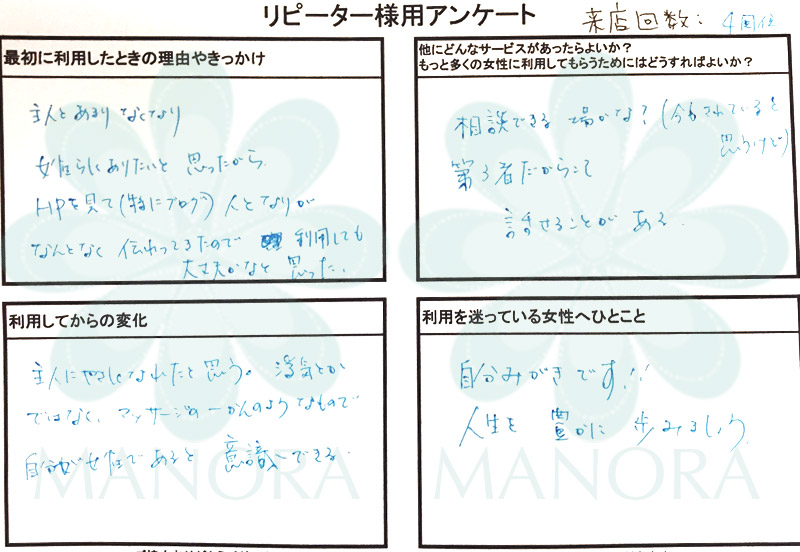 リピーター様用アンケート
来店回数： 4回位
最初に利用したときの理由やきっかけ
主人とあまりなくなり
女性らしくありたいと思ったから
HPを見て(特にブログ) 人となりが
なんとなく伝わってきたので 利用しても
大丈夫かなと思った。
他にどんなサービスがあったらよいか？
もっと多くの女性に利用してもらうためにはどうすればよいか？
相談できる場かな？(今もされていると
思うけど)
第3者だからこそ
話せることがある。
利用してからの変化
主人にやさしくなれたと思う。浮気とか
ではなく、マッサージの一かんのようなもので
自分が女性であると意識できる。
利用を迷っている女性へひとこと
自分みがきです!!
人生を豊かに歩みましょう
MANORA
MANORA